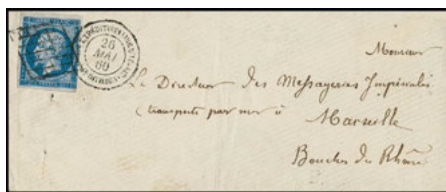 26
MAI
60
Monsieur
Le Directeur des Messageries Impériales
(transports par mer à
Marseille
Bouches du Rhône